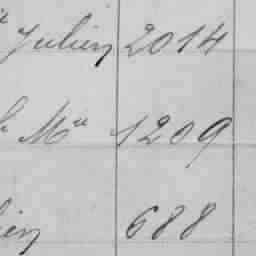 Julien 2014
Mll 1209
ien 688